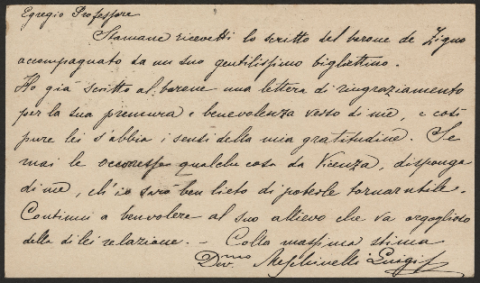 Egregio Professore
Stamane ricevetti lo scritto del barone de Zigno
accompagnato da un suo gentilissimo bigliettino.
Ho già scritto al barone una lettera di ringraziamento
per la sua premura e benevolenza verso di me, e così
pure lei s'abbia i sensi della mia gratitudine. Se
mai le occoresse qualche cosa da Vicenza, disponga
di me, ch'io sarò ben lieto di poterle tornar utile.
Continui a benvolere al suo allievo che va orgoglioso
della di lei relazione. — Colla massima stima
Dev.mo Meschinelli Luigi